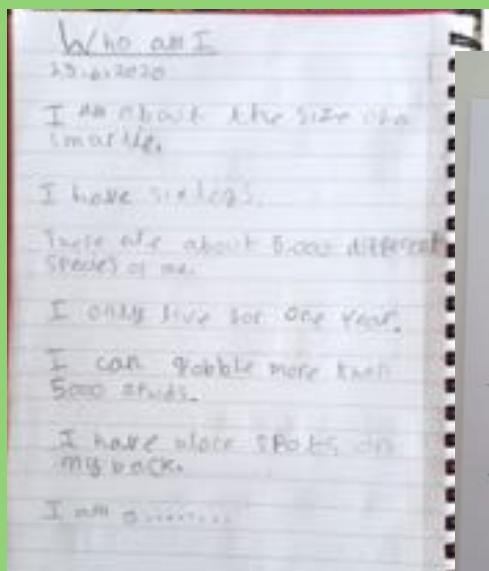 Who am I
29.6.2020
I am about the size of a
smartie.
I have six legs.
There are about 5,000 different
species of me.
I only live for one year.
I can gobble more than
5000
I have black spots on
my back.
I am a.........